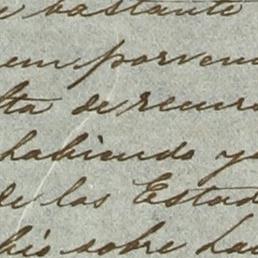 bastante
en porven
lta de recurs
habiendo y
de los Estad
bió sobre la